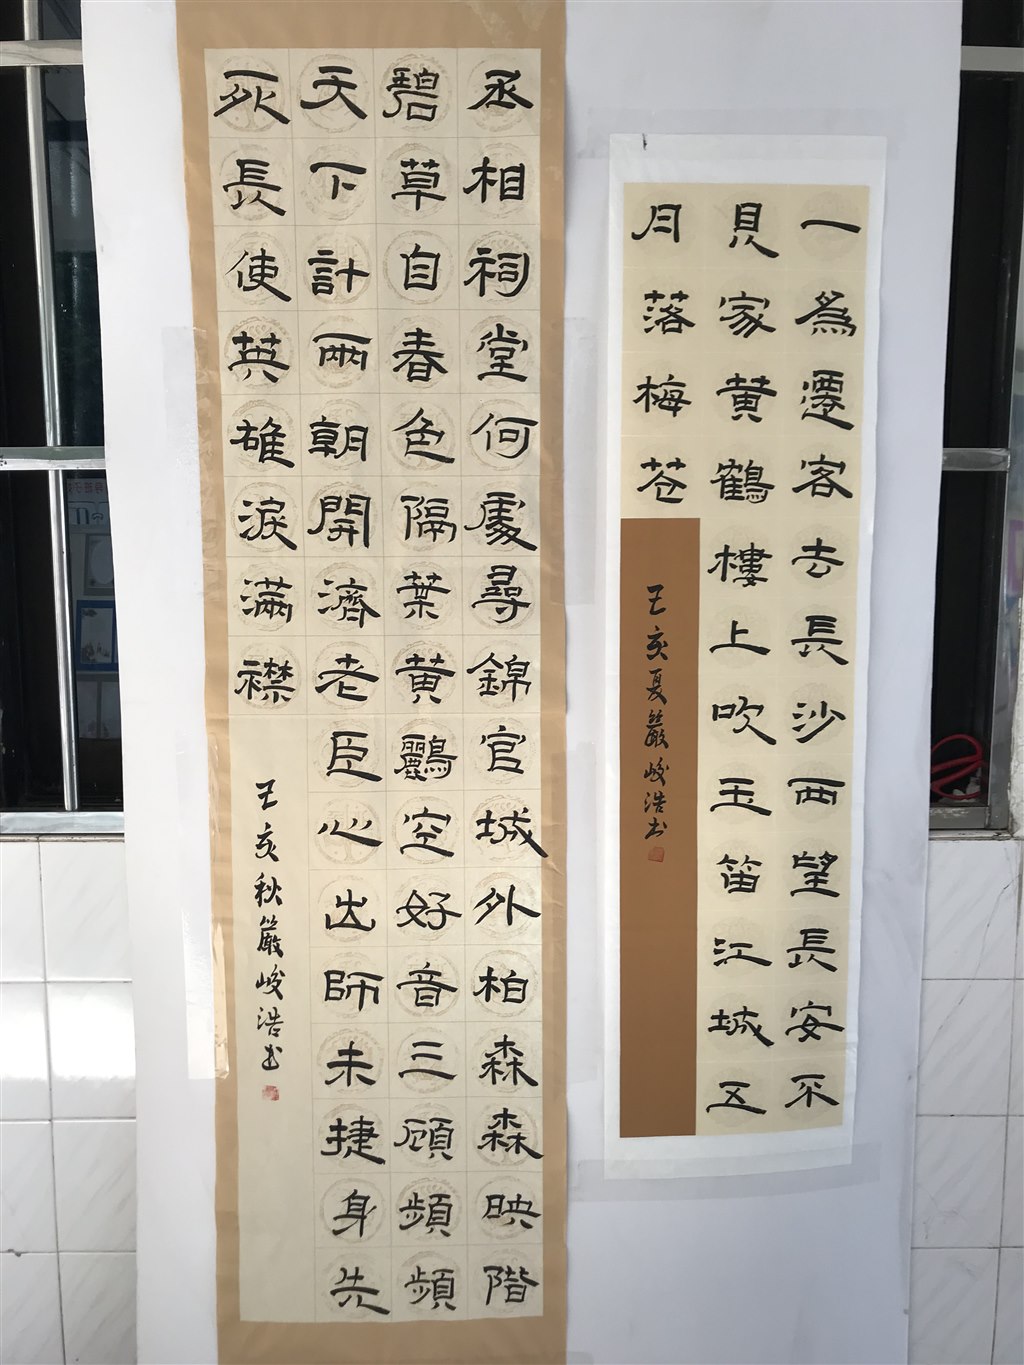 丞相祠堂何處尋錦官城外柏森森映階
碧草自春色隔葉黄鸝空好音三顧頻頻
天下計兩朝開濟老臣心出師未捷身先
死長使英雄淚滿襟
壬亥秋嚴峻浩书
一為遷客去長沙西望長安不
見家黄鶴樓上吹玉笛江城五
月落梅花
壬亥夏嚴峻浩书